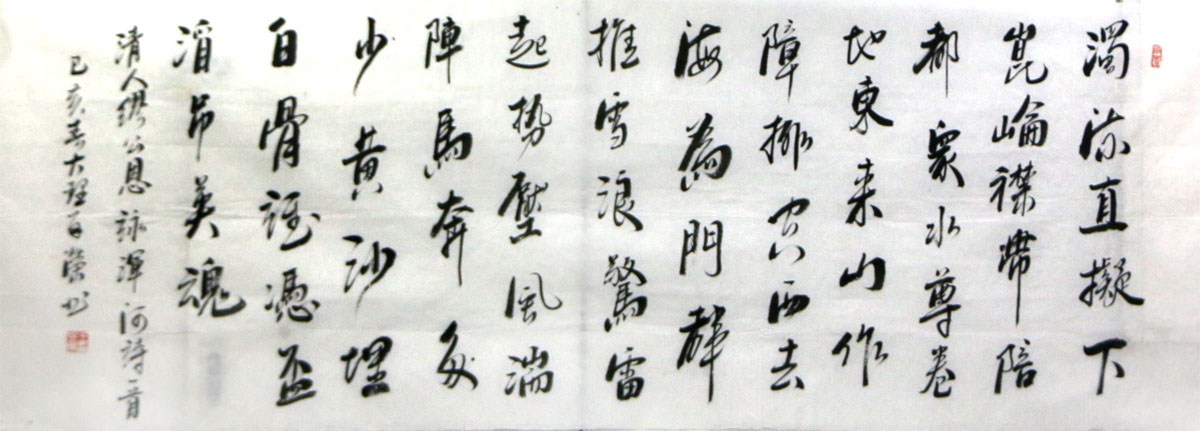 濁流直擬下
崑崙襟帶陪
都衆水尊卷
地東來山作
障排空西去
海為門聲
推雪浪驚雷
起勢壓風湍
陣馬奔多
少黃沙埋
白骨誰憑盃
酒吊英魂
清人繆公恩詠渾河詩一首
己亥春大理